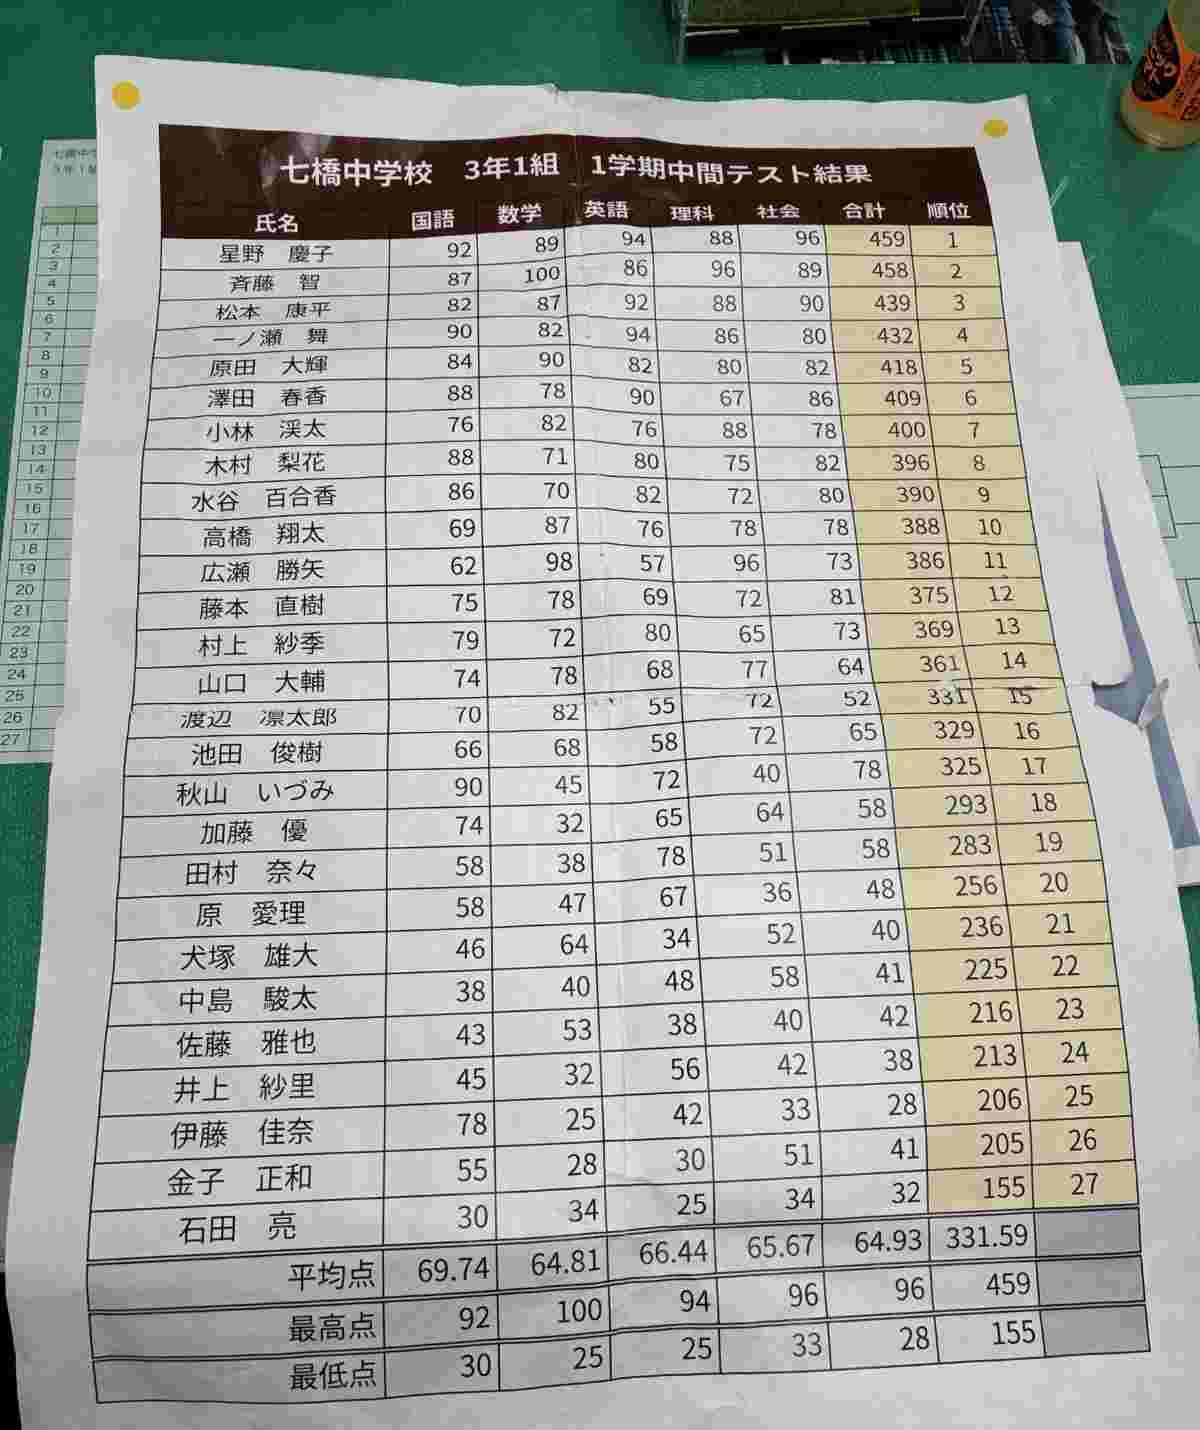 七橋中学校 3年1組 1学期中間テスト結果
氏名 国語 数学 英語 理科 社会 合計 順位
星野 慶子 92 89 94 88 96 459 1
斉藤 智 87 100 86 96 89 458 2
松本 康平 82 87 92 88 90 439 3
一ノ瀬 舞 90 82 94 86 80 432 4
原田 大輝 84 90 82 80 82 418 5
澤田 春香 88 78 90 67 86 409 6
小林 渓太 76 82 76 88 78 400 7
木村 梨花 88 71 80 75 82 396 8
水谷 百合香 86 70 82 72 80 390 9
高橋 翔太 69 87 76 78 78 388 10
広瀬 勝矢 62 98 57 96 73 386 11
藤本 直樹 75 78 69 72 81 375 12
村上 紗季 79 72 80 65 73 369 13
山口 大輔 74 78 68 77 64 361 14
渡辺 凛太郎 70 82 55 72 52 331 15
池田 俊樹 66 68 58 72 65 329 16
秋山 いづみ 90 45 72 40 78 325 17
加藤 優 74 32 65 64 58 293 18
田村 奈々 58 38 78 51 58 283 19
原 愛理 58 47 67 36 48 256 20
犬塚 雄大 46 64 34 52 40 236 21
中島 駿太 38 40 48 58 41 225 22
佐藤 雅也 43 53 38 40 42 216 23
井上 紗里 45 32 56 42 38 213 24
伊藤 佳奈 78 25 42 33 28 206 25
金子 正和 55 28 30 51 41 205 26
石田 亮 30 34 25 34 32 155 27
平均点 69.74 64.81 66.44 65.67 64.93 331.59
最高点 92 100 94 96 96 459
最低点 30 25 25 33 28 155
七橋中学
3年1組
1
2
3
4
5
6
7
8
9
10
11
12
13
14
15
16
17
18
19
20
21
22
23
24
25
26
27